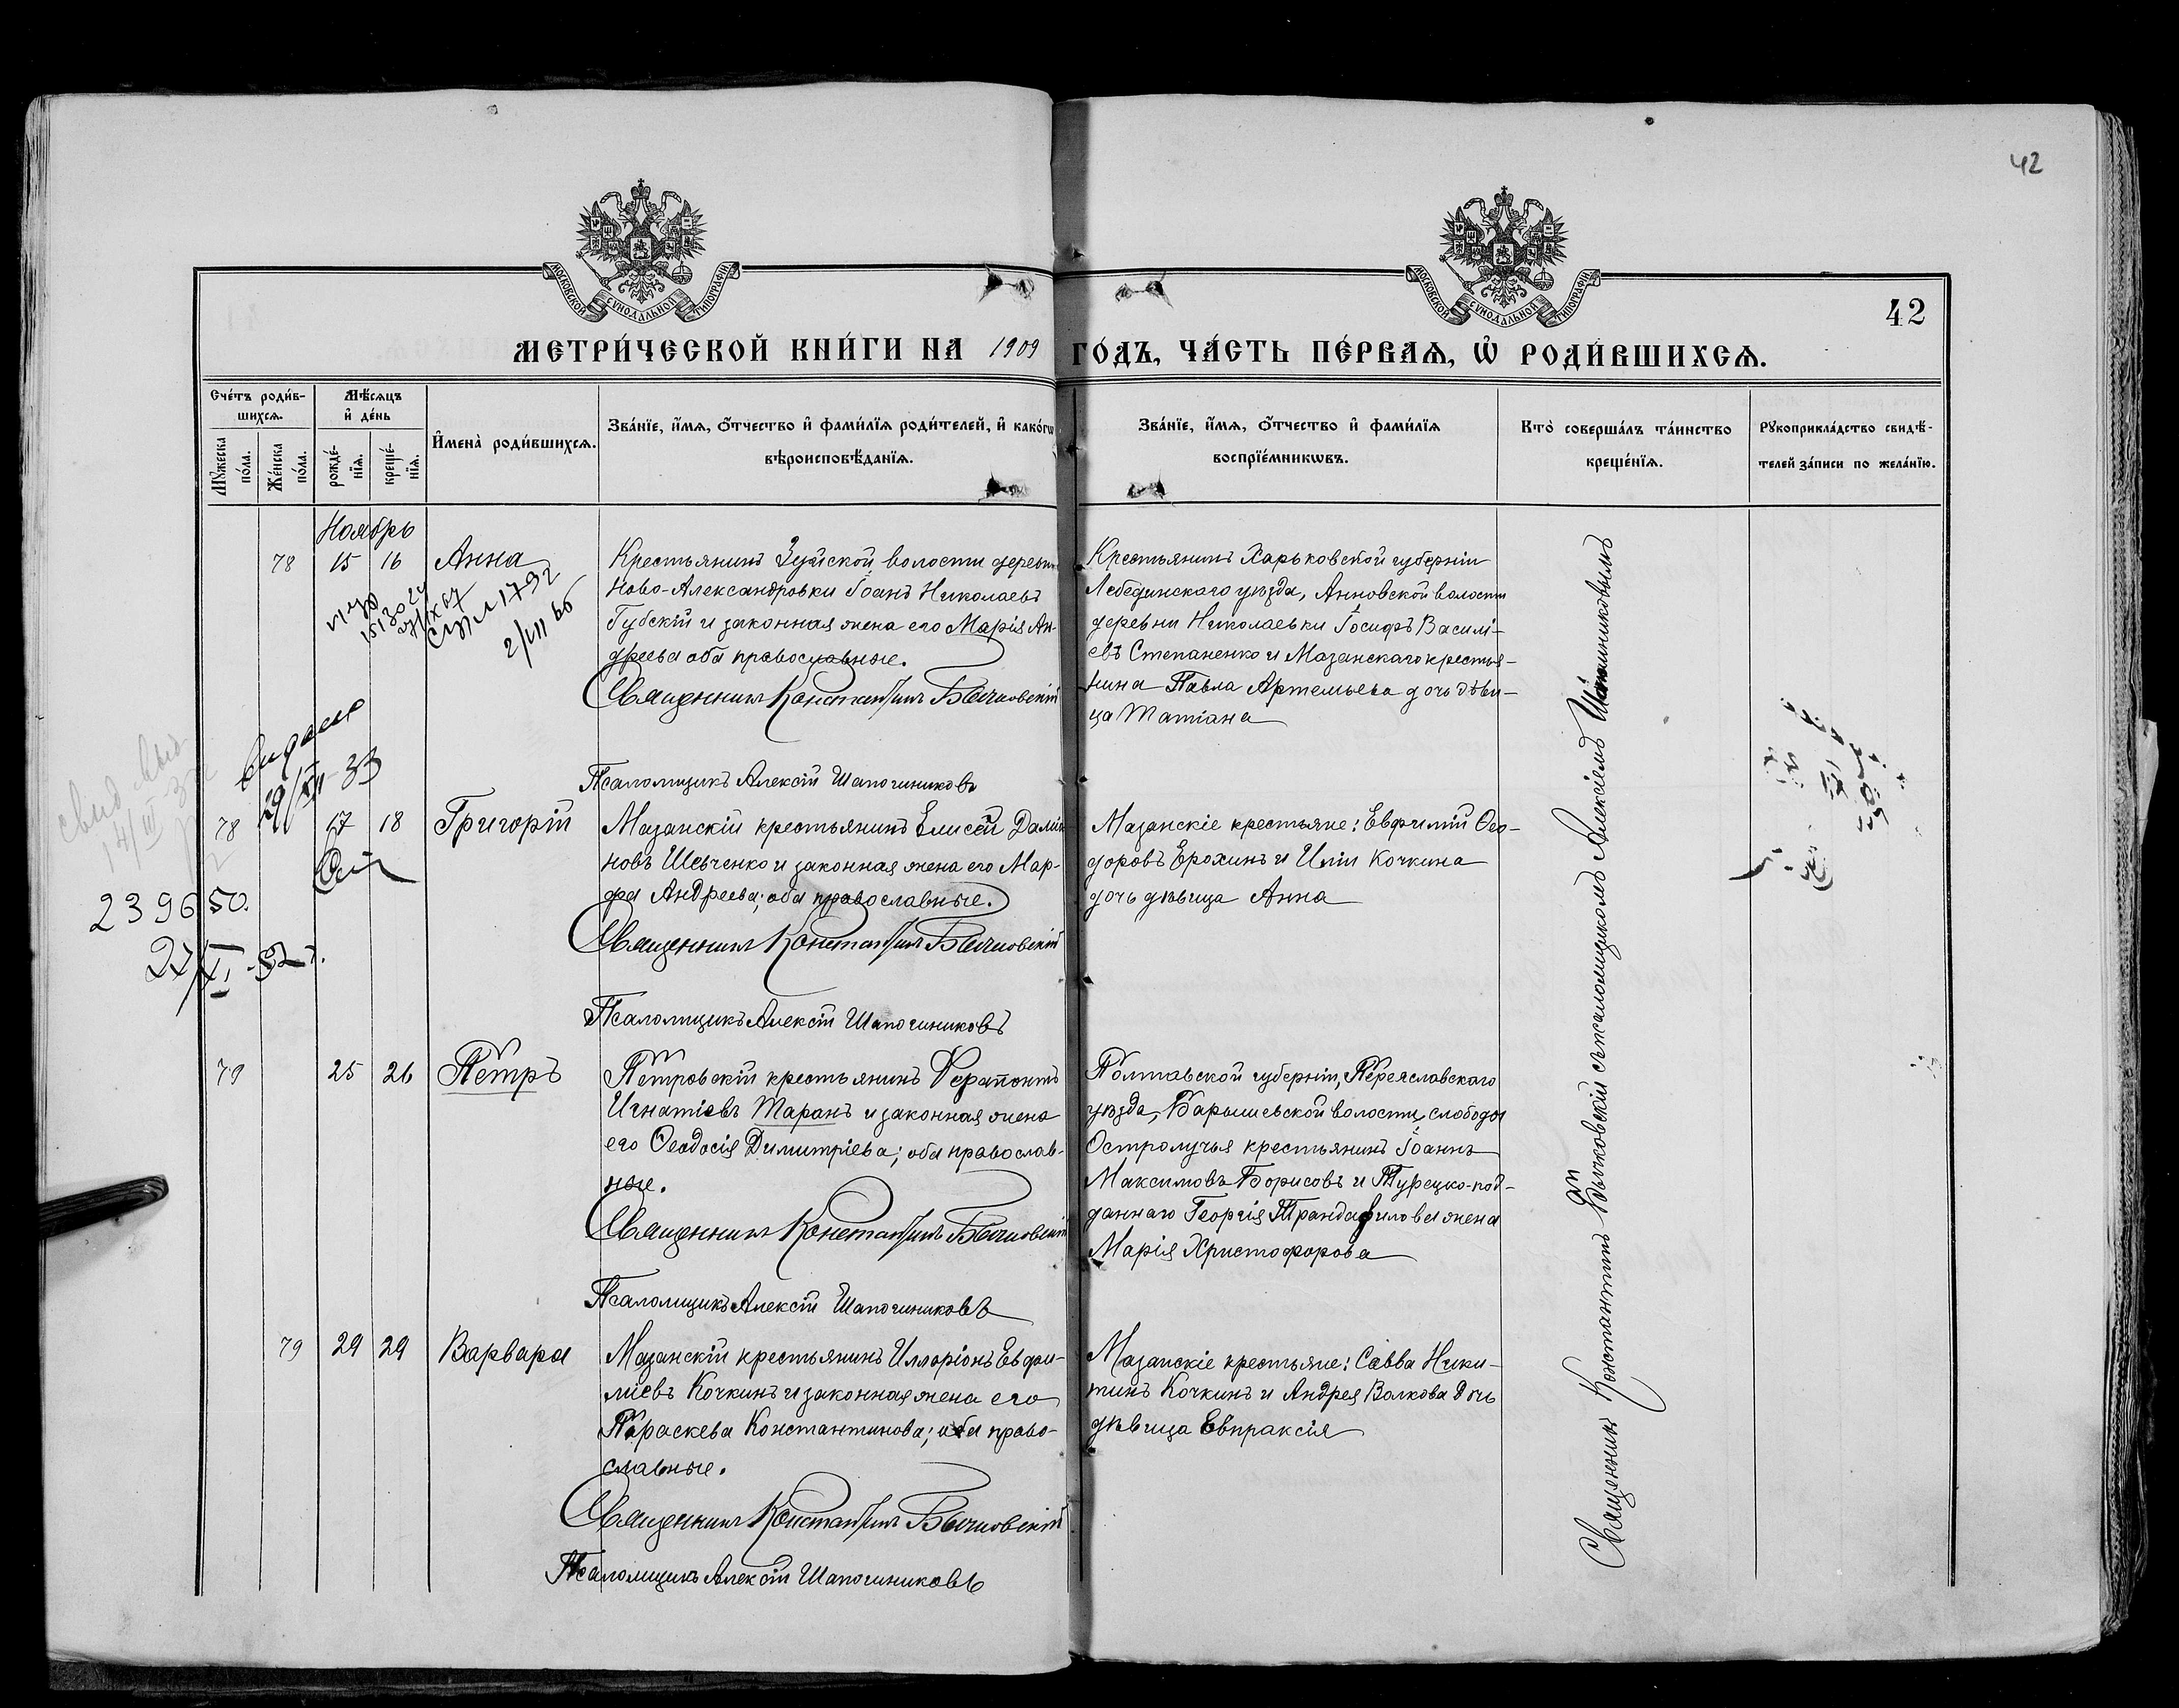 42
МОСКОВСКОЙ СУНОДАЛЬНОЙ ТИПОГРАФІИ
МОСКОВСКОЙ СУНОДАЛЬНОЙ ТИПОГРАФІИ
42
МЕТРИ́ЧЕСКОЙ КНИ́ГИ НА 1909 ГО́ДЪ, ЧА́СТЬ ПЕ́РВАѦ, Ѡ҆ РОДИ́ВШИХСѦ.
Сче́тъ роди́в-
шихсѧ.
Мꙋ́жеска
по́ла.
Же́нска
по́ла.
Мѣ́сѧцъ
и҆ де́нь
рожде́-
нїѧ.
креще́-
нїѧ.
И҆мена̀ роди́вшихсѧ.
Зва́нїе, и҆́мѧ, ѻ҆́тчество и҆ фами́лїѧ роди́телей, и҆ како́гѡ
вѣроисповѣ́данїѧ.
Зва́нїе, и҆́мѧ, ѻ҆́тчество и҆ фами́лїѧ
воспрїе́мникѡвъ.
Кто̀ соверша́лъ та́инство
креще́нїѧ.
Рꙋкоприкла́дство свидѣ́-
телей за́писи по жела́нїю.
Ноябрь
78 15 16 Анна
Крестьянинъ Зуйской волости деревни
Ново-Александровки Іоанъ Николаевъ
Губскій и законная жена его Марія Ан-
дреева оба православные.
Священникъ Константинъ Бычковскій
Псаломщикъ Алексій Шапочниковъ
Крестьянинъ Харьковской губерніи
Лебединскаго уѣзда, Анновской волости
деревни Николаевки Іосифъ Василі-
евъ Степаненко и Мазанскаго крестья-
нина Павла Артемьева дочь дѣви-
ца Татіана
1792
2/VII 66
видано
29/XII-33
78 17 18 Григорій
Мазанскій крестьянинъ Елисей Даміа-
новъ Шевченко и законная жена его Мар-
фа Андреева; оба православные.
Священникъ Константинъ Бычковскій
Псаломщикъ Алексій Шапочниковъ
Мазанскіе крестьяне: Евфимій Ѳео-
доровъ Ерохинъ и Иліи Кочкина
дочь дѣвица Анна
239650.
79 25 26 Петръ
Петровскій крестьянинъ Ферапонтъ
Игнатіевъ Таранъ и законная жена
его Ѳеодосія Димитріева; оба православ-
ные.
Священникъ Константинъ Бычковскій
Псаломщикъ Алексій Шапочниковъ
Полтавской губерніи, Переяславскаго
уѣзда, Барышевской волости, слободы
Остролучья крестьянинъ Іоаннъ
Максимовъ Борисовъ и Турецко-под-
даннаго Георгія Трандафилова жена
Марія Христофорова
79 29 29 Варвара
Мазанскій крестьянинъ Илларіонъ Евфи-
міевъ Кочкинъ и законная жена его
Параскева Константинова; оба право-
славные.
Священникъ Константинъ Бычковскій
Псаломщикъ Алексій Шапочниковъ
Мазанскіе крестьяне: Савва Ники-
тинъ Кочкинъ и Андрея Волкова дочь
дѣвица Евпраксія
Священникъ Константинъ Бычковскій съ псаломщикомъ Алексіемъ Шапочниковымъ